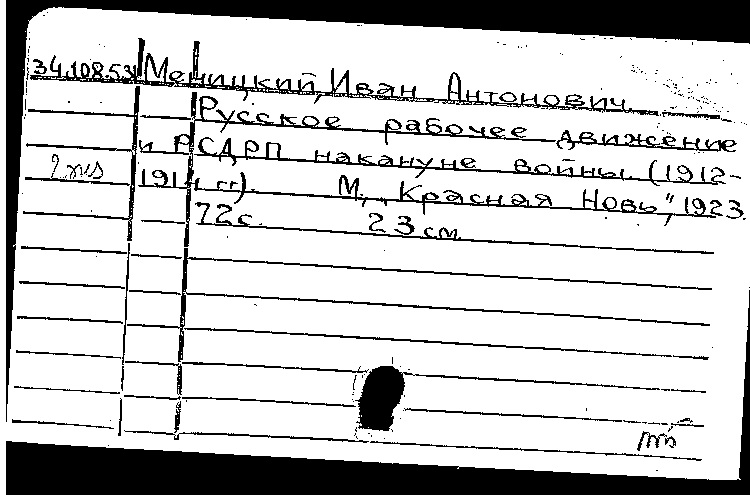 34.108.53 Меницкий, Иван Антонович.
Русское рабочее движение
и РСДРП накануне войны. (1912-
1914 гг). М., „Красная Новь", 1923.
72с. 23 см.